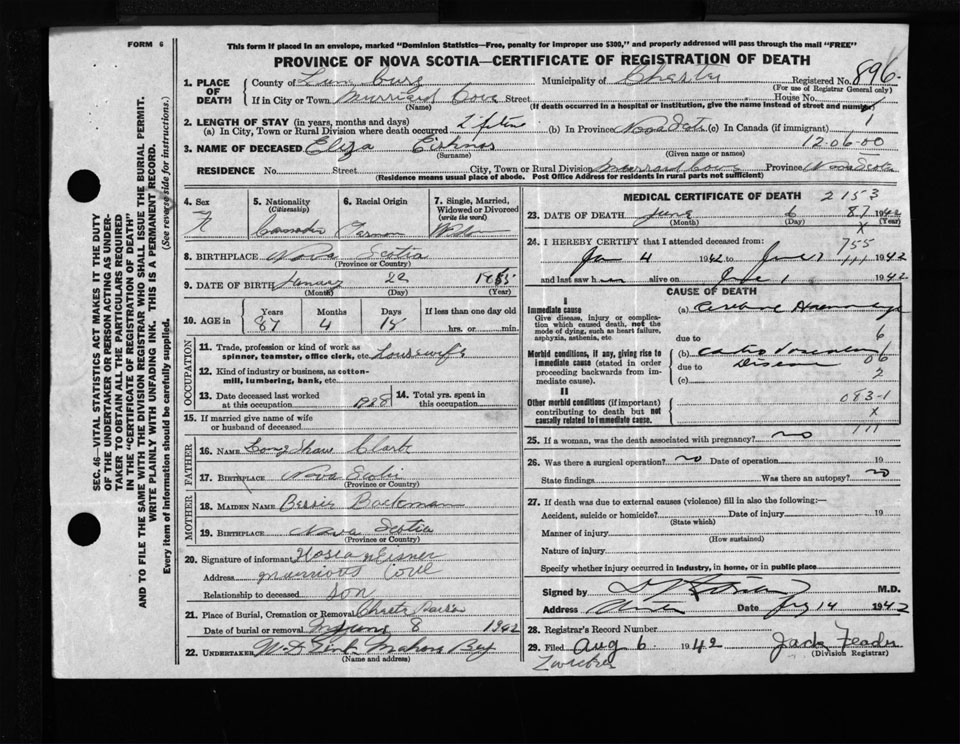 FORM 6
This form if placed in an envelope, marked "Dominion Statistics—Free, penalty for improper use $300," and properly addressed will pass through the mail "FREE"
PROVINCE OF NOVA SCOTIA—CERTIFICATE OF REGISTRATION OF DEATH
SEC. 46—VITAL STATISTICS ACT MAKES IT THE DUTY
OF THE UNDERTAKER OR PERSON ACTING AS UNDER-
TAKER TO OBTAIN ALL THE PARTICULARS REQUIRED
IN THE "CERTIFICATE OF REGISTRATION OF DEATH"
AND TO FILE THE SAME WITH THE DIVISION REGISTRAR WHO SHALL ISSUE THE BURIAL PERMIT.
WRITE PLAINLY WITH UNFADING INK. THIS IS A PERMANENT RECORD.
Every item of information should be carefully supplied. (See reverse side for instructions.)
1. PLACE OF DEATH County of Lunenburg Municipality of Chester Registered No. 896
(For use of Registrar General only)
If in City or Town Cove Street House No.
(Name) (If death occurred in a hospital or institution, give the name instead of street and number)
2. LENGTH OF STAY (in years, months and days)
(a) In City, Town or Rural Division where death occurred (b) In Province Nova Scotia (c) In Canada (if immigrant)
3. NAME OF DECEASED Eliza 12-06-00
(Surname) (Given name or names)
RESIDENCE No. Street City, Town or Rural Division Cove Province Nova Scotia
(Residence means usual place of abode. Post Office Address for residents in rural parts not sufficient)
4. Sex F
5. Nationality (Citizenship) Canadian
6. Racial Origin German
7. Single, Married, Widowed or Divorced (write the word)
8. BIRTHPLACE Nova Scotia
(Province or Country)
9. DATE OF BIRTH January 22
(Month) (Day) (Year)
10. AGE in Years Months Days If less than one day old
87 4 hrs. or min.
OCCUPATION
11. Trade, profession or kind of work as spinner, teamster, office clerk, etc. housewife
12. Kind of industry or business, as cotton-mill, lumbering, bank, etc.
13. Date deceased last worked at this occupation 1938
14. Total yrs. spent in this occupation
15. If married give name of wife or husband of deceased
FATHER
16. NAME Clark
17. BIRTHPLACE Nova Scotia
(Province or Country)
MOTHER
18. MAIDEN NAME Bessie Backman
19. BIRTHPLACE Nova Scotia
(Province or Country)
20. Signature of informant Hosea Eisner
Address Cove
Relationship to deceased son
21. Place of Burial, Cremation or Removal Chester
Date of burial or removal June 8 1942
22. UNDERTAKER Mahone Bay
(Name and address)
MEDICAL CERTIFICATE OF DEATH 2153
23. DATE OF DEATH June 6 1942
(Month) (Day) (Year)
24. I HEREBY CERTIFY that I attended deceased from: 755
Jan 4 1942 to June 1942
and last saw h alive on June 1 1942
CAUSE OF DEATH
I
Immediate cause (a) Cerebral
Give disease, injury or complication which caused death, not the mode of dying, such as heart failure, asphyxia, asthenia, etc
due to
Morbid conditions, if any, giving rise to immediate cause (stated in order proceeding backwards from immediate cause). (b)
due to Disease
(c)
II
Other morbid conditions (if important) contributing to death but not causally related to immediate cause. 083-1
25. If a woman, was the death associated with pregnancy? no
26. Was there a surgical operation? no Date of operation 19
State findings Was there an autopsy? no
27. If death was due to external causes (violence) fill in also the following:—
Accident, suicide or homicide? Date of injury 19
(State which)
Manner of injury
(How sustained)
Nature of injury
Specify whether injury occurred in industry, in home, or in public place
Signed by M.D.
Address Date July 14 1942
28. Registrar's Record Number
29. Filed Aug 6 1942 Jack
(Division Registrar)